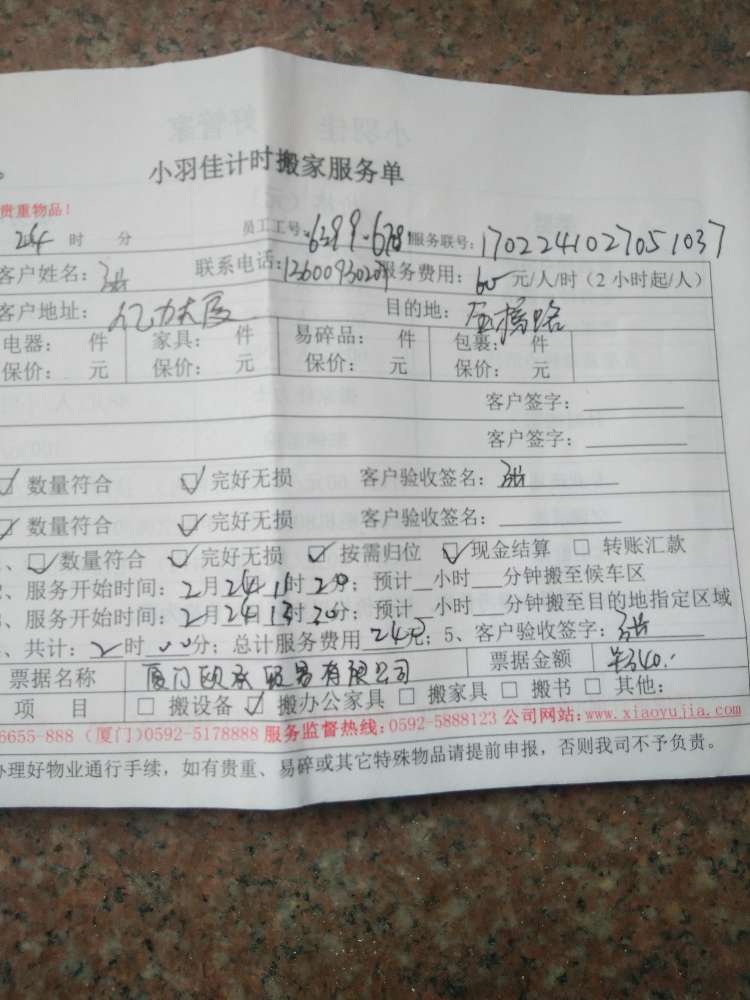 小羽佳计时搬家服务单
贵重物品！
24 时 分 员工工号：6299.678 服务联号：1702241027051037
客户姓名： 联系电话： 服务费用：60元/人/时（2小时起/人）
客户地址：亿力大厦 目的地：
电器： 件 家具： 件 易碎品： 件 包裹： 件
保价： 元 保价： 元 保价： 元 保价： 元
客户签字：
客户签字：
数量符合 完好无损 客户验收签名：
数量符合 完好无损 客户验收签名：
、数量符合 完好无损 按需归位 现金结算 转账汇款
、服务开始时间：2月24 时 分；预计 小时 分钟搬至候车区
、服务开始时间：2月24日13时30分；预计 小时 分钟搬至目的地指定区域
、共计：2时00分；总计服务费用 元；5、客户验收签字：
票据名称 厦门 贸易有限公司 票据金额
项 目 搬设备 搬办公家具 搬家具 搬书 其他：
6655-888（厦门)0592-5178888 服务监督热线：0592-5888123 公司网站：www.xiaoyujia.com
办理好物业通行手续，如有贵重、易碎或其它特殊物品请提前申报，否则我司不予负责。